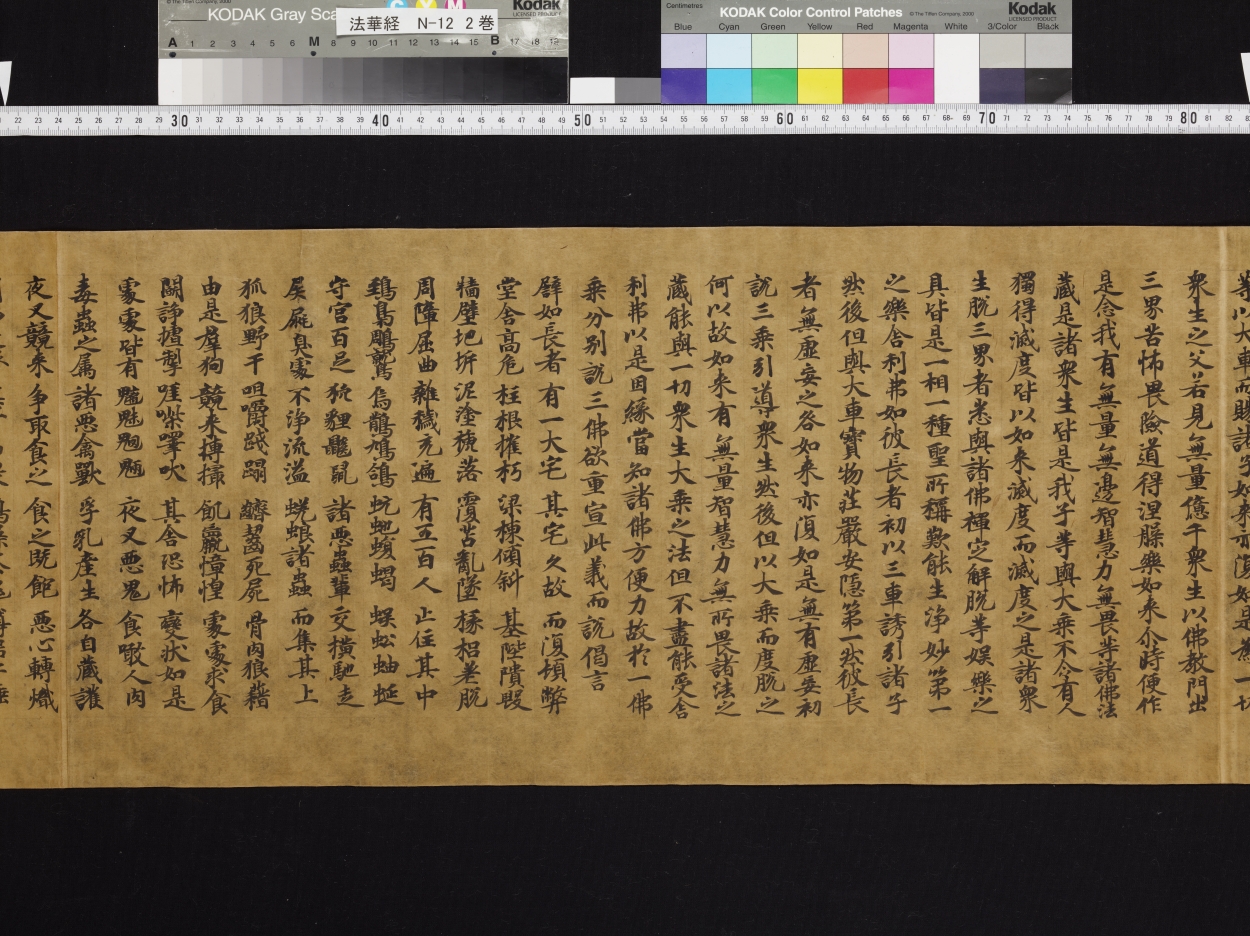 © The Tiffen Company, 2000
KODAK Gray Sca
C Y M
Kodak
LICENSED PRODUCT
法華経 N-12 2巻
A 1 2 3 4 5 6 M 8 9 10 11 12 13 14 15 B 17 18 19
Centimetres
KODAK Color Control Patches
© The Tiffen Company, 2000
Kodak
LICENSED PRODUCT
Blue Cyan Green Yellow Red Magenta White 3/Color Black
22 23 24 25 26 27 28 29 30 31 32 33 34 35 36 37 38 39 40 41 42 43 44 45 46 47 48 49 50 51 52 53 54 55 56 57 58 59 60 61 62 63 64 65 66 67 68 69 70 71 72 73 74 75 76 77 78 79 80 81 82
等以大車而賜諸子如来亦復如是為一切
衆生之父若見無量億千衆生以佛教門出
三界苦怖畏險道得涅槃樂如来尒時便作
是念我有無量無邊智慧力無畏等諸佛法
蔵是諸衆生皆是我子等與大乗不令有人
獨得滅度皆以如来滅度而滅度之是諸衆
生脱三界者悉與諸佛禪定解脱等娯樂之
具皆是一相一種聖所稱歎能生浄妙第一
之樂舎利弗如彼長者初以三車誘引諸子
然後但與大車寶物莊嚴安隠第一然彼長
者無虚妄之各如来亦復如是無有虚妄初
說三乗引導衆生然後但以大乗而度脱之
何以故如来有無量智慧力無所畏諸法之
蔵能與一切衆生大乗之法但不盡能受舎
利弗以是因縁當知諸佛方便力故於一佛
乗分別說三佛欲重宣此義而說偈言
譬如長者 有一大宅 其宅久故 而復頓弊
堂舎高危 柱根摧朽 梁棟傾斜 基陛隤毀
墻壁圯坼 泥塗褫落 覆苫亂墜 椽梠差脱
周障屈曲 雜穢充遍 有五百人 止住其中
鵄梟鵰鷲 烏鵲鳩鴿 蚖虵蝮蝎 蜈蚣蚰蜒
守宮百足 狖貍鼷鼠 諸悪蟲輩 交横馳走
屎屁臭處 不浄流溢 蜣蜋諸蟲 而集其上
狐狼野干 咀嚼踐蹋 嚌齧死屍 骨肉狼藉
由是羣狗 競来搏撮 飢羸慞惶 處處求食
闘諍摣掣 嘊喍嘷吠 其舎恐怖 變状如是
處處皆有 魑魅魍魎 夜叉悪鬼 食噉人肉
毒蟲之属 諸悪禽獸 孚乳産生 各自蔵護
夜叉競来 争取食之 食之既飽 悪心轉熾